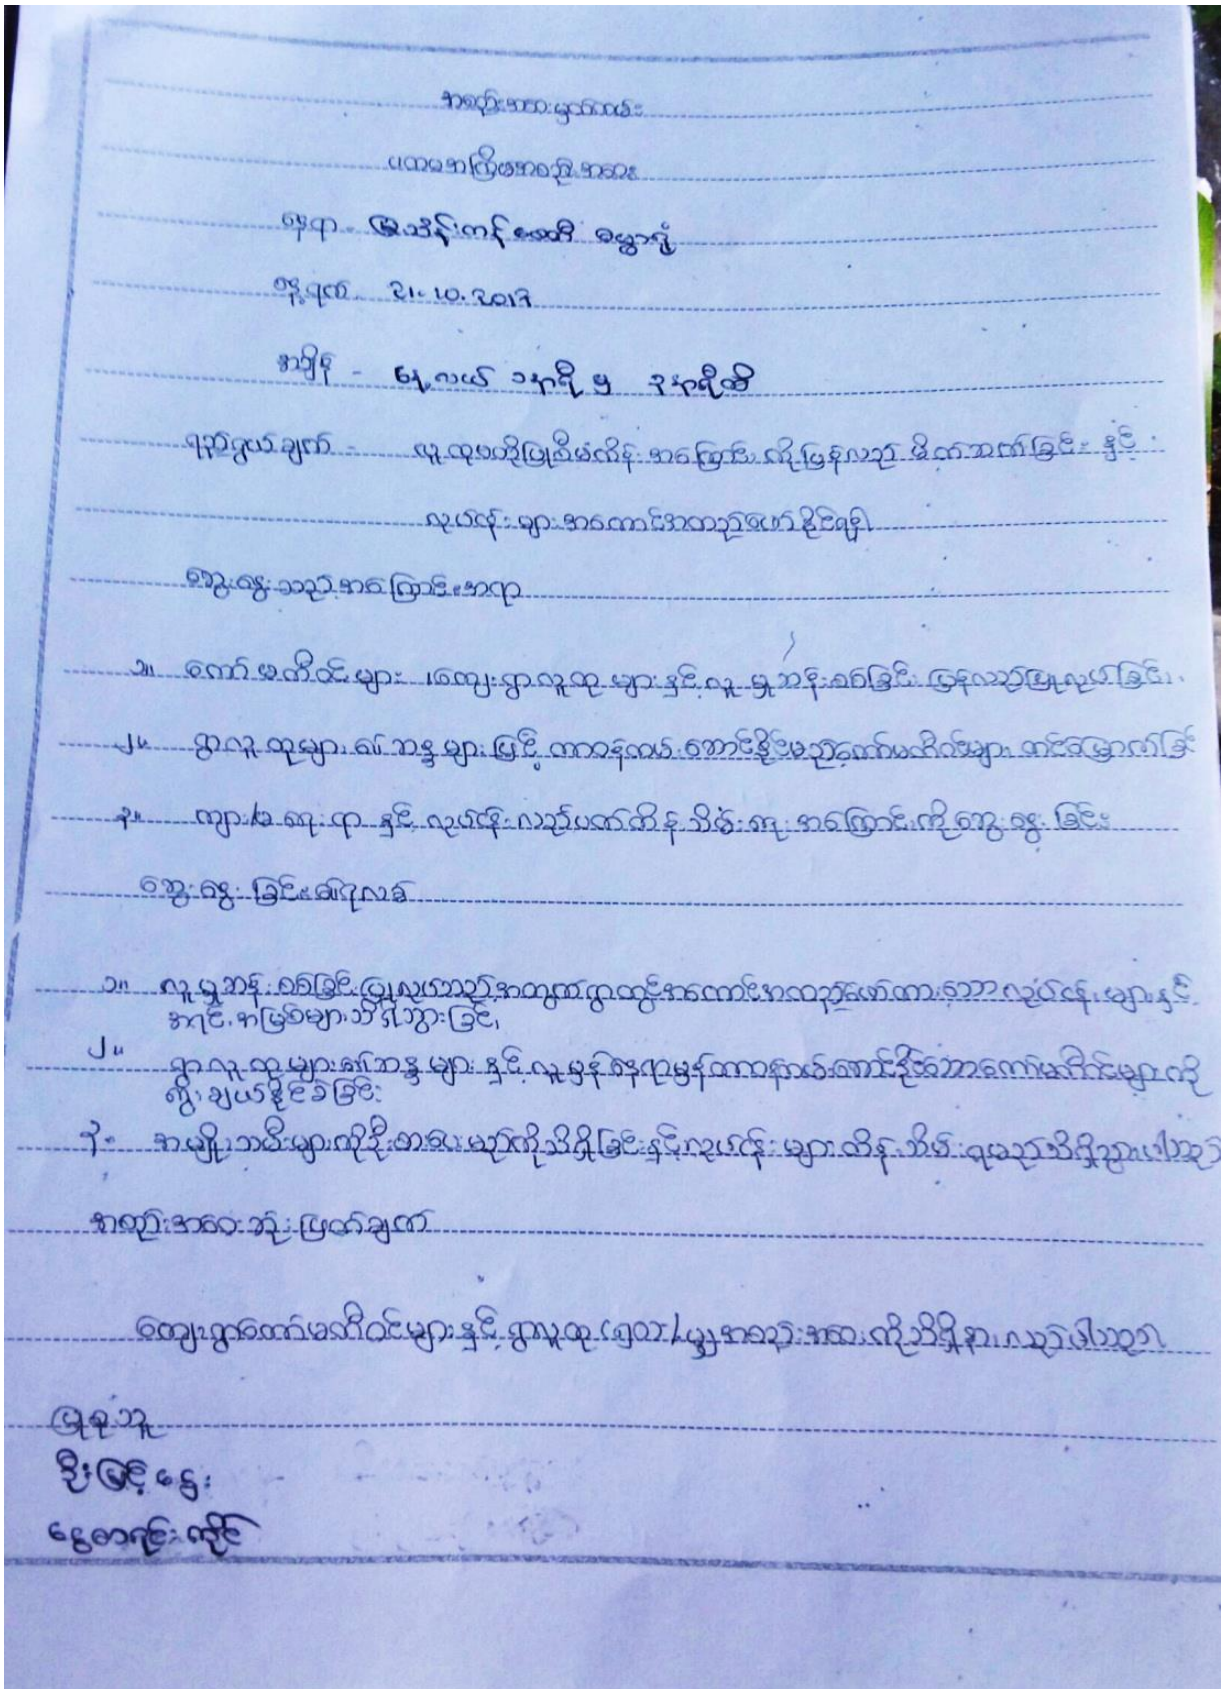 အစည်းအဝေးမှတ်တမ်း
ပထမအကြိမ်အစည်းအဝေး
နေရာ - မြသိန်းကန်စေတီ ဓမ္မာရုံ
နေ့ရက် - 21.10.2017
အချိန် - နေ့လယ် ၁နာရီ မှ ၃နာရီထိ
ရည်ရွယ်ချက် - လူထုဗဟိုပြုစီမံကိန်း အကြောင်းကို ပြန်လည် မိတ်ဆက်ခြင်း နှင့်
လုပ်ငန်းများ အကောင်အထည်ဖော်နိုင်ရန်
ဆွေးနွေးသည့်အကြောင်းအရာ
၁။ ကော်မတီဝင်များ ၊ကျေးရွာလူထုများနှင့် လူမှုဆန်းစစ်ခြင်း ပြန်လည်ပြုလုပ်ခြင်း၊
၂။ ရွာလူထုများ၏ဆန္ဒများဖြင့် တာဝန်ထမ်းဆောင်နိုင်မည့်ကော်မတီဝင်များ တင်မြှောက်ခြင်
၃။ ကျား/မရေးရာ နှင့် လုပ်ငန်းလည်ပတ်ထိန်းသိမ်းရေး အကြောင်းကိုဆွေးနွေးခြင်း
ဆွေးနွေးခြင်း၏ရလဒ်
၁။ လူမှုဆန်းစစ်ခြင်းပြုလုပ်သည့်အတွက်ရွာတွင်အကောင်အထည်ဖော်ထားသော လုပ်ငန်းများနှင့်
အရင်းအမြစ်များသိရှိသွားခြင်း၊
၂။ ရွာလူထုများ၏ဆန္ဒများ နှင့် လူမှန်နေရာမှန်တာဝန်ထမ်းဆောင်နိုင်သောကော်မတီဝင်များကို
ရွေးချယ်နိုင်ခဲ့ခြင်း
၃။ အမျိုးသမီးများကိုဦးစားပေးမည်ကိုသိရှိခြင်းနှင့်လုပ်ငန်းများထိန်းသိမ်းရမည်သိရှိသွားပါသည်
အစည်းအဝေးဆုံးဖြတ်ချက်
ကျေးရွာကော်မတီဝင်များနှင့် ရွာလူထု အစည်းအဝေးကိုသိရှိနားလည်ပါသည်။
ပြုစုသူ
ဦးမြင့်ဌွေး
ငွေစာရင်းကိုင်